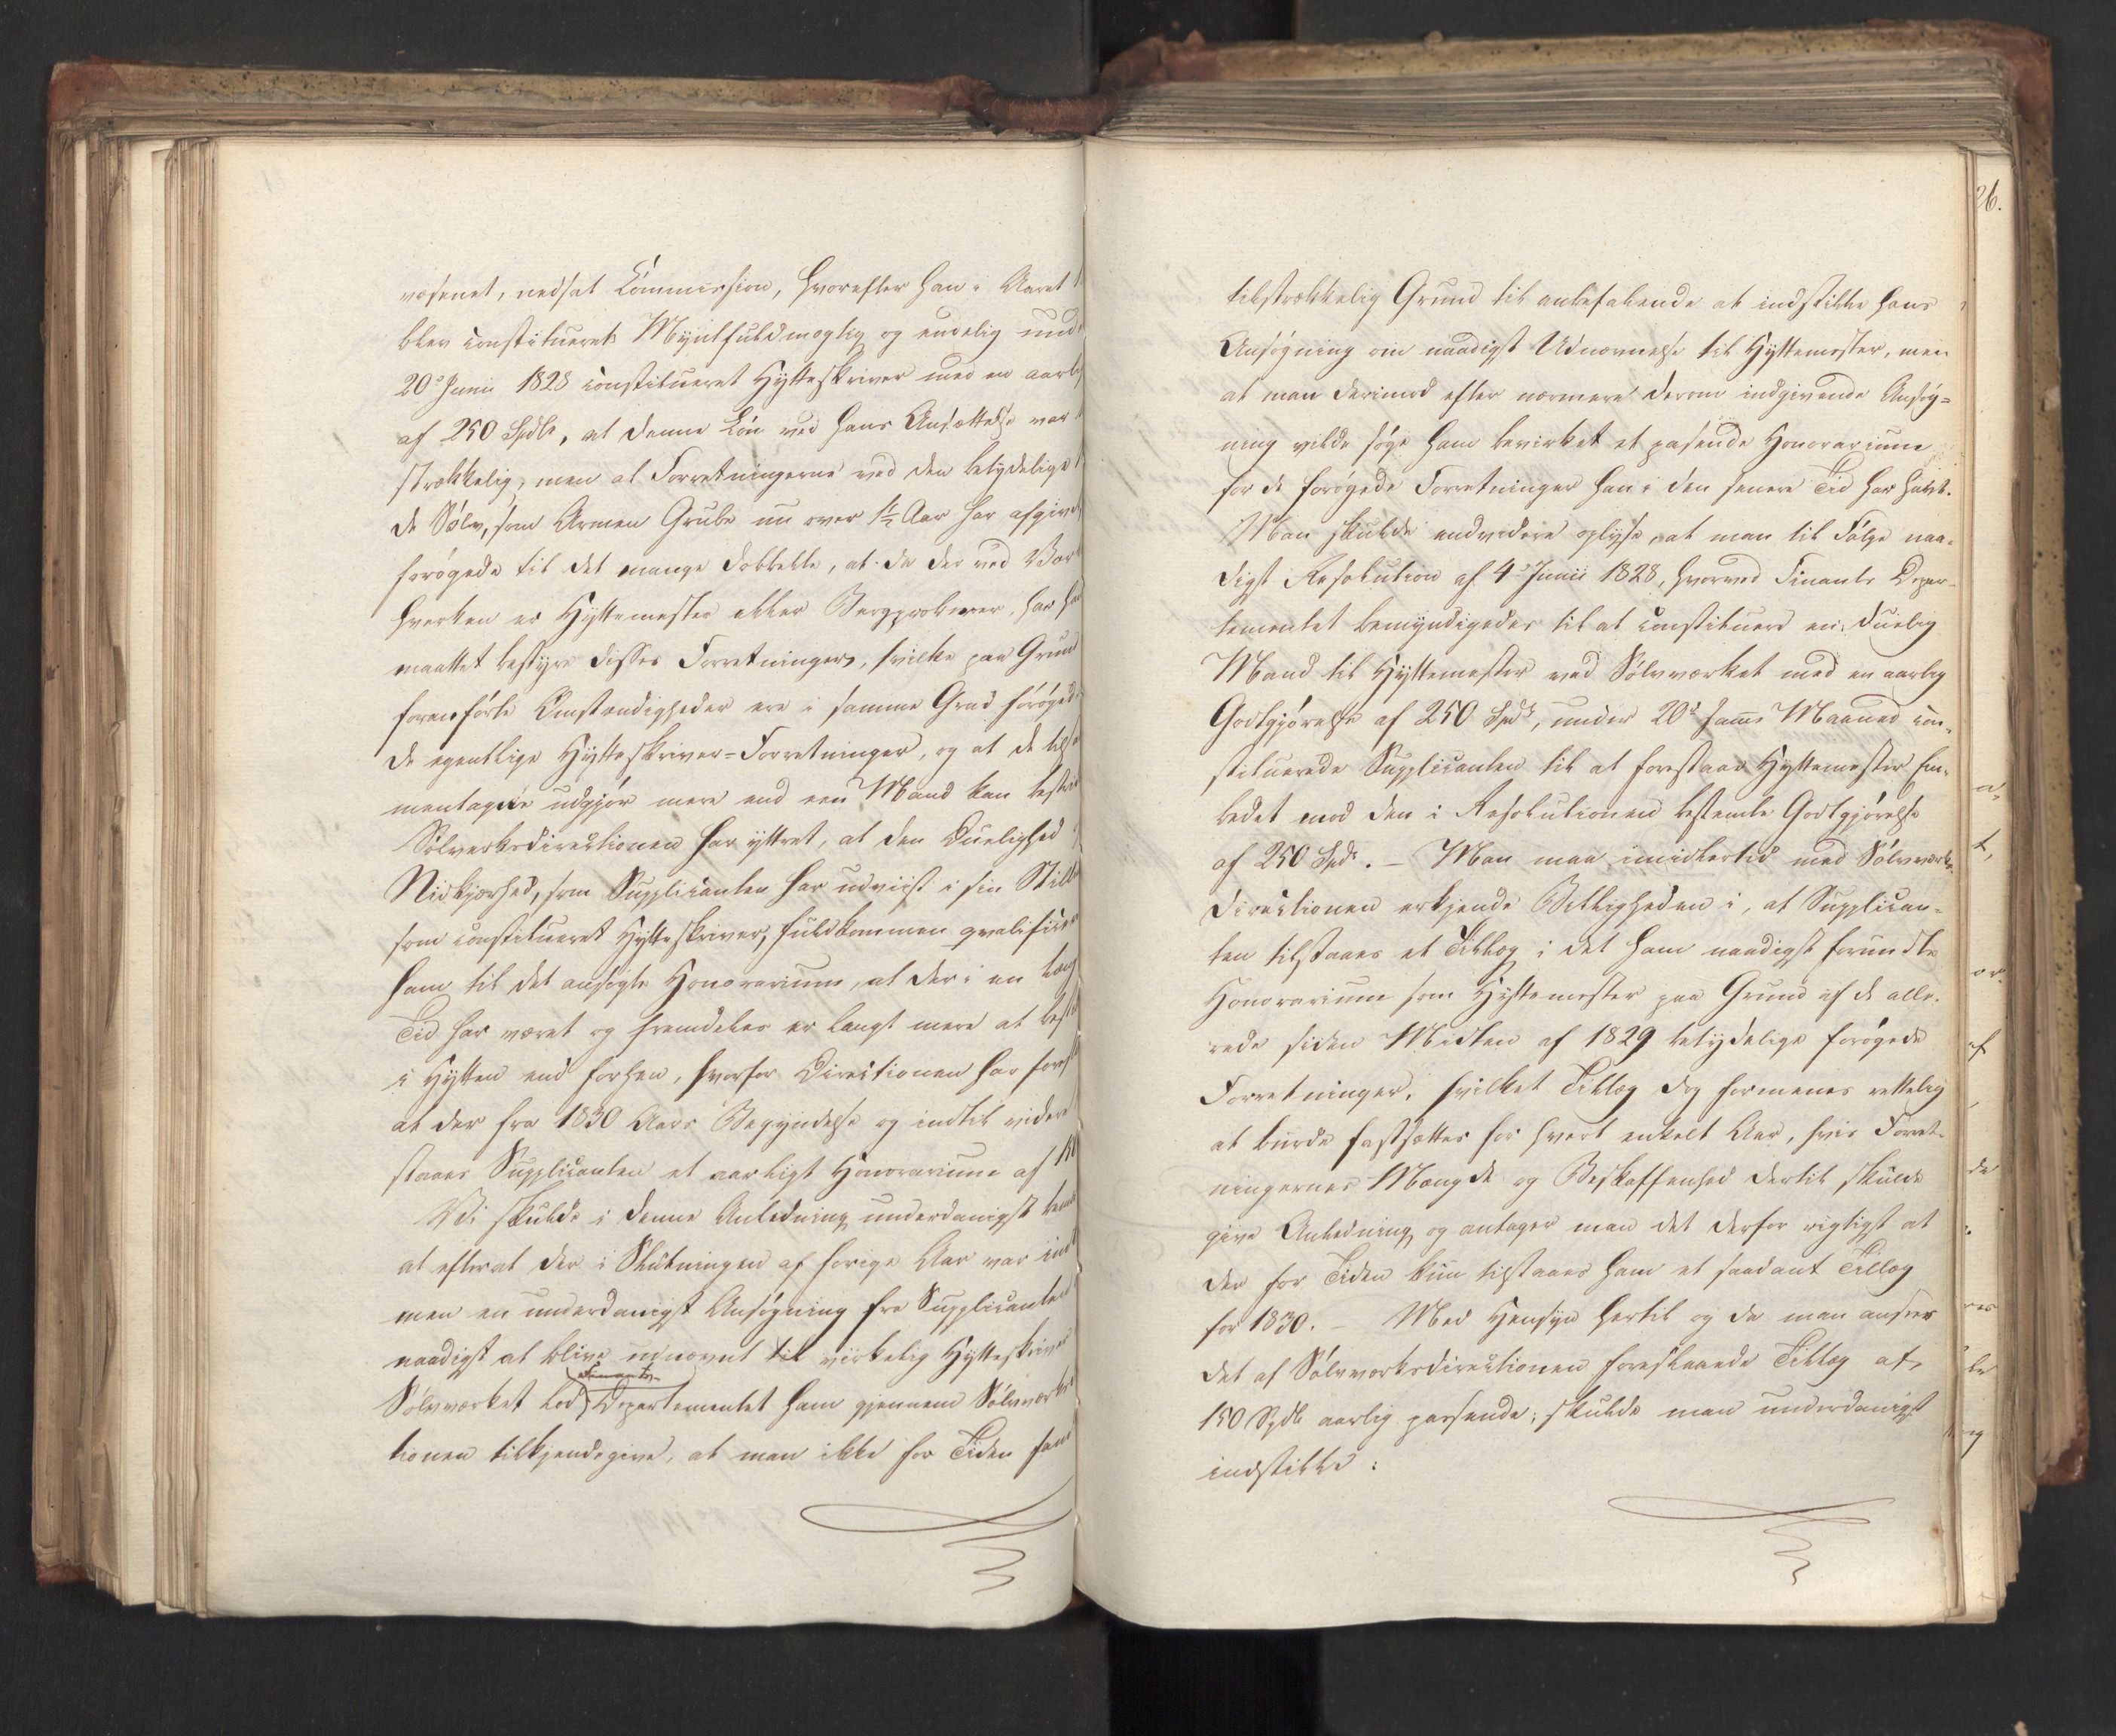 væsenet, nedsat Commission, hvorefter han i Aaret
blev constitueret Myntfuldmægtig og endelig und
20de Junii 1828 constitueret Hytteskriver med en aarlig
af 250 Spdlr, at denne Løn ved hans Ansættelse var
strækkelig, men at Forretningerne ved den betydelige
de Sølv, som Armen Grube nu over 1½ Aar har afgivet
forøgede til det mange dobbelte, at da der ved Vær
hverken er Hyttemester eller Bergprobeerer, har ha
maattet bestyre disses Forretninger, hvilke paa Grund
foranførte Omstændigheder ere i samme Grad forøged
de egentlige Hytteskriver-Forretninger, og at de tils
mentagne udgjør mere end een Mand kan bestri
Sølverksdirectionen har yttret, at den Duelighed
Nidkjærhed, som Supplicanten har udviist i sin Still
som constitueret Hytteskriver, fuldkommen qvalificer
ham til det ansøgte Honorarium, at der i en lang
Tid har været og fremdeles er langt mere at bes
i Hytten end forhen, hvorfor Directionen har fores
at der fra 1830 Aars Begyndelse og indtil videre
staaes Supplicanten et aarligt Honorarium af 150
Vi skulde i denne Anledning underdanigst bem
at efterat der i Slutningen af forige Aar var ind
men en underdanigst Ansøgning fra Supplicanten
naadigst at blive udnævnt til virkelig Hytteskriver
Finants-
Sølvværket lod Departementet ham gjennem Sølvværks
tionen tilkjendegive, at man ikke for Tiden fan
26.
tilstrækkelig Grund til anbefalende at indstille hans
Ansøgning om naadigst Udnævnelse til Hyttemester, men
at man derimod efter nærmere derom indgivende Ansøg-
ning vilde søge ham bevirket et passende Honorarium
for de forøgede Forretninger han i den senere Tid har havt.
Man skulde endvidere oplyse, at man til Følge naa-
digst Resolution af 4de Junii 1828, hvorved Finants Depar-
tementet bemyndigedes til at constituere en duelig
Mand til Hyttemester ved Sølvværket med en aarlig
Godtgjørelse af 250 Spdr, under 20de samme Maaned con-
stituerede Supplicanten til at forestaae Hyttemester Em-
bedet mod den i Resolutionen bestemte Godtgjørelse
af 250 Spdr. – Man maa imidlertid med Sølvværks-
directionen erkjende Billigheden i, at Supplican-
ten tilstaaes et Tillæg i det ham naadigst forundte
Honorarium som Hyttemester paa Grund af de alle-
rede siden Midten af 1829 betydelige forøgede
Forretninger, hvilket Tillæg dog formenes rettelig
at burde fastsættes for hvert enkelt Aar, hvis Forret-
ningernes Mængde og Beskaffenhed dertil skulde
give Anledning og antager man det derfor rigtigst at
der for Tiden kun tilstaaes ham et saadant Tillæg
for 1830. – Med Hensyn hertil og da man anseer
det af Sølvværksdirectionen foreslaaede Tillæg af
150 Spdlr aarlig passende; skulde man underdanigst
indstille: